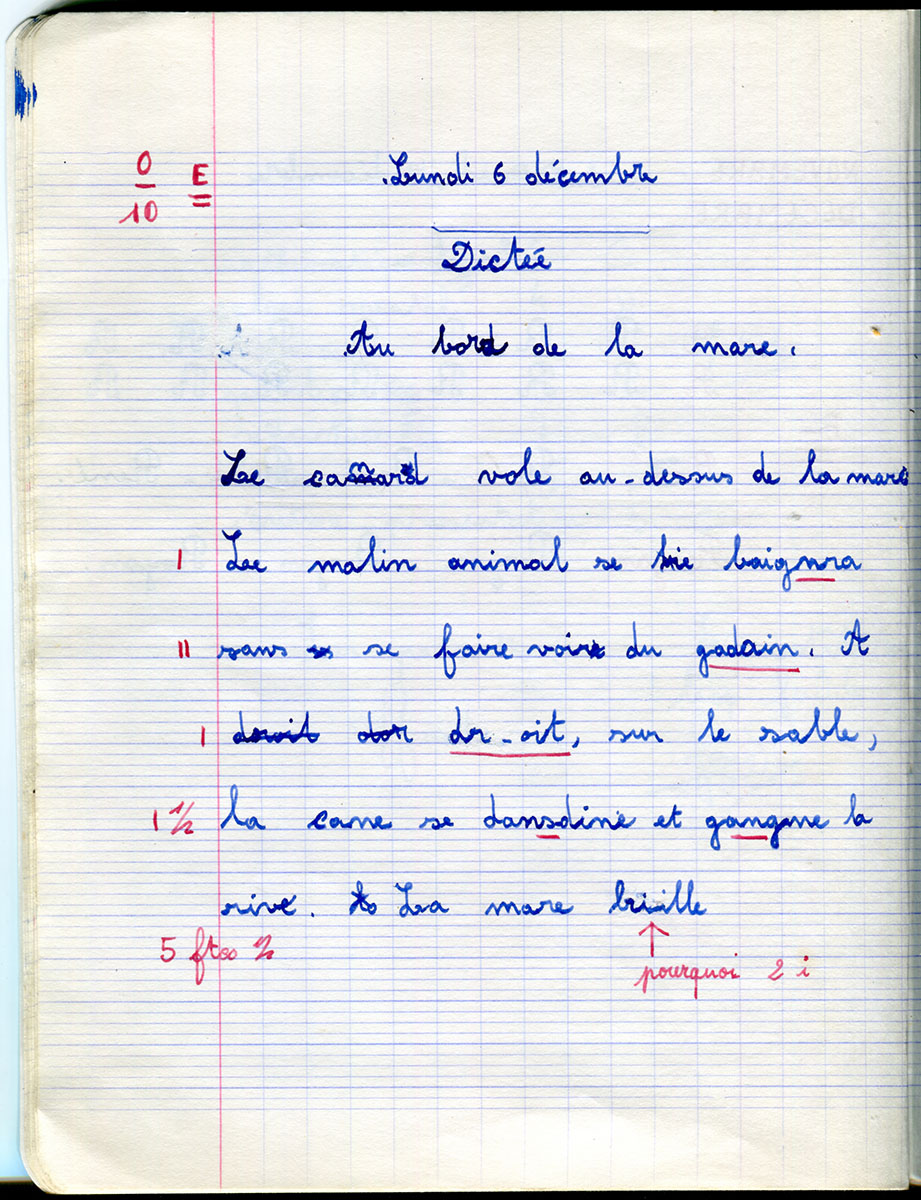 0/10 E
Lundi 6 décembre
Dictée
Au bord de la mare.
Le canard vole au-dessus de la mare
I Le malin animal se baignra
II sans se faire voir du gadain. A
I droit dor dr-oit, sur le sable,
I ½ la cane se dansdine et gangne la
rive. La mare briille
5 ftes ½
pourquoi 2 i